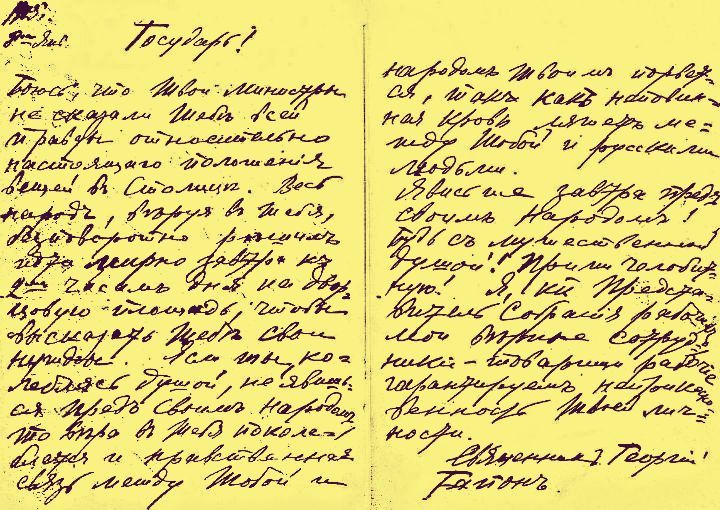 1905.
8го Янв.
Государь!
Боюсь, что Твои министры
не сказали Тебѣ всей
правды относительно
настоящаго положенія
вещей въ Столицѣ. Весь
народъ, вѣруя въ Тебя,
безповоротно рѣшилъ
идти мирно завтра къ
2мъ часамъ дня на Двор-
цовую площадь, чтобы
высказать Тебѣ свои
нужды. Если ты, ко-
леблясь душой, не явишь-
ся предъ своимъ народомъ,
то вѣра въ Тебя поколе-
блется и нравственная
связь между Тобой и
народомъ Твоимъ порвет-
ся, такъ какъ неповин-
ная кровь ляжетъ ме-
жду Тобой и русскими
людьми.
Явись же завтра предъ
своимъ Народомъ!
Будь съ мужественной
душой! Прими челобит-
ную! Я, Представи-
витель Собранія рабочихъ
мои вѣрные сотруд-
ники – товарищи рабочіе
гарантируемъ неприкосно-
венность Твоей лич-
ности.
Священникъ Георгій
Гапонъ.